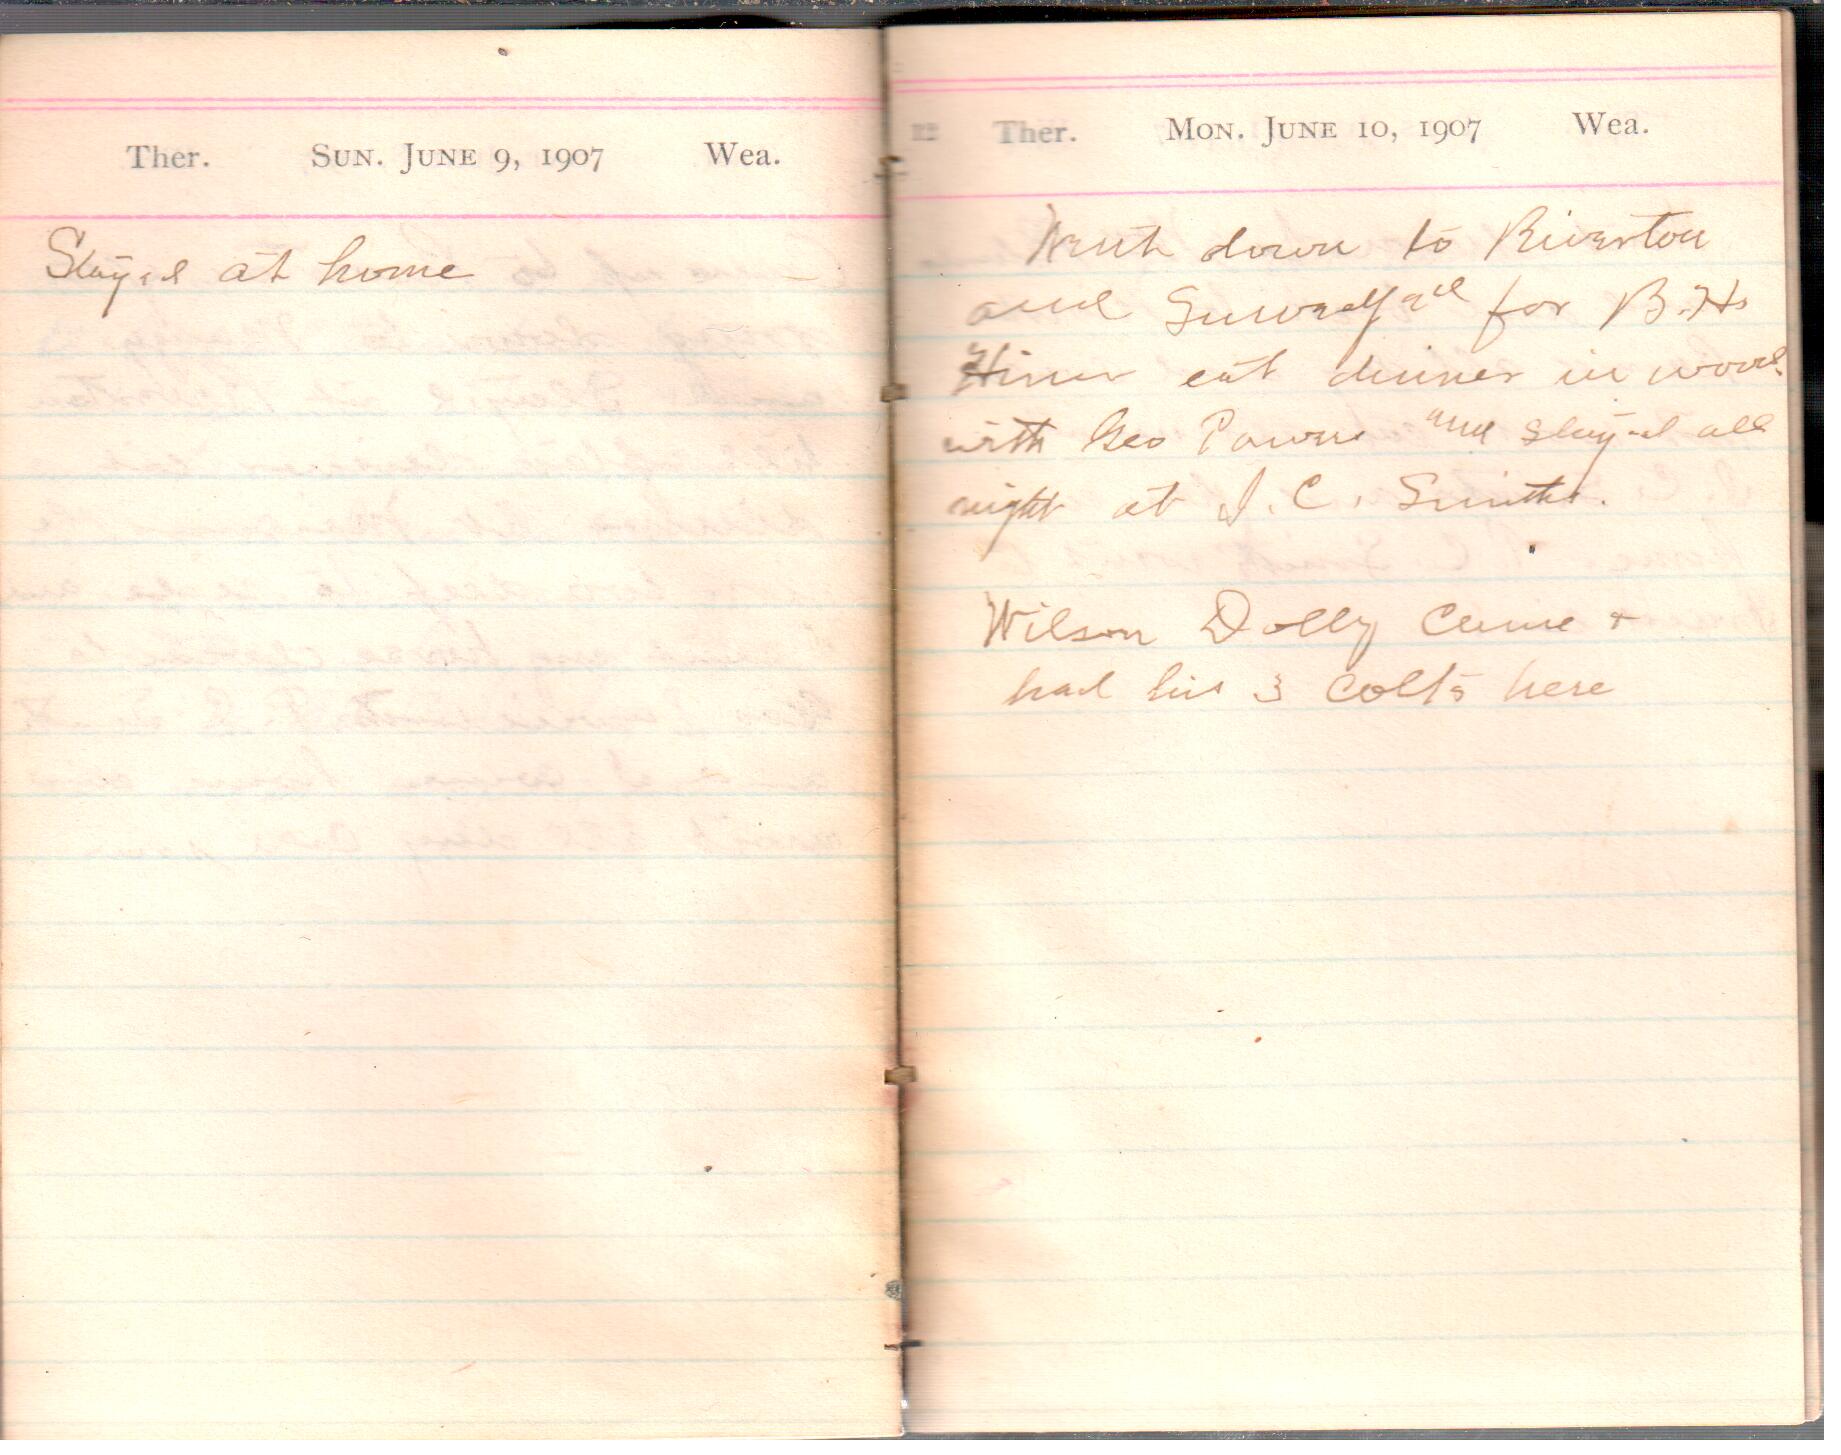 Ther. Sun. June 9, 1907 Wea.
Stayed at home
Ther. Mon. June 10, 1907 Wea.
Went down to Riverton
and Surveyed for B. H.
Hiner eat dinner in woods
with Geo Powers and stayed all
night at J. C. Smiths.
Wilson Dolly Came +
had his 3 Colts here